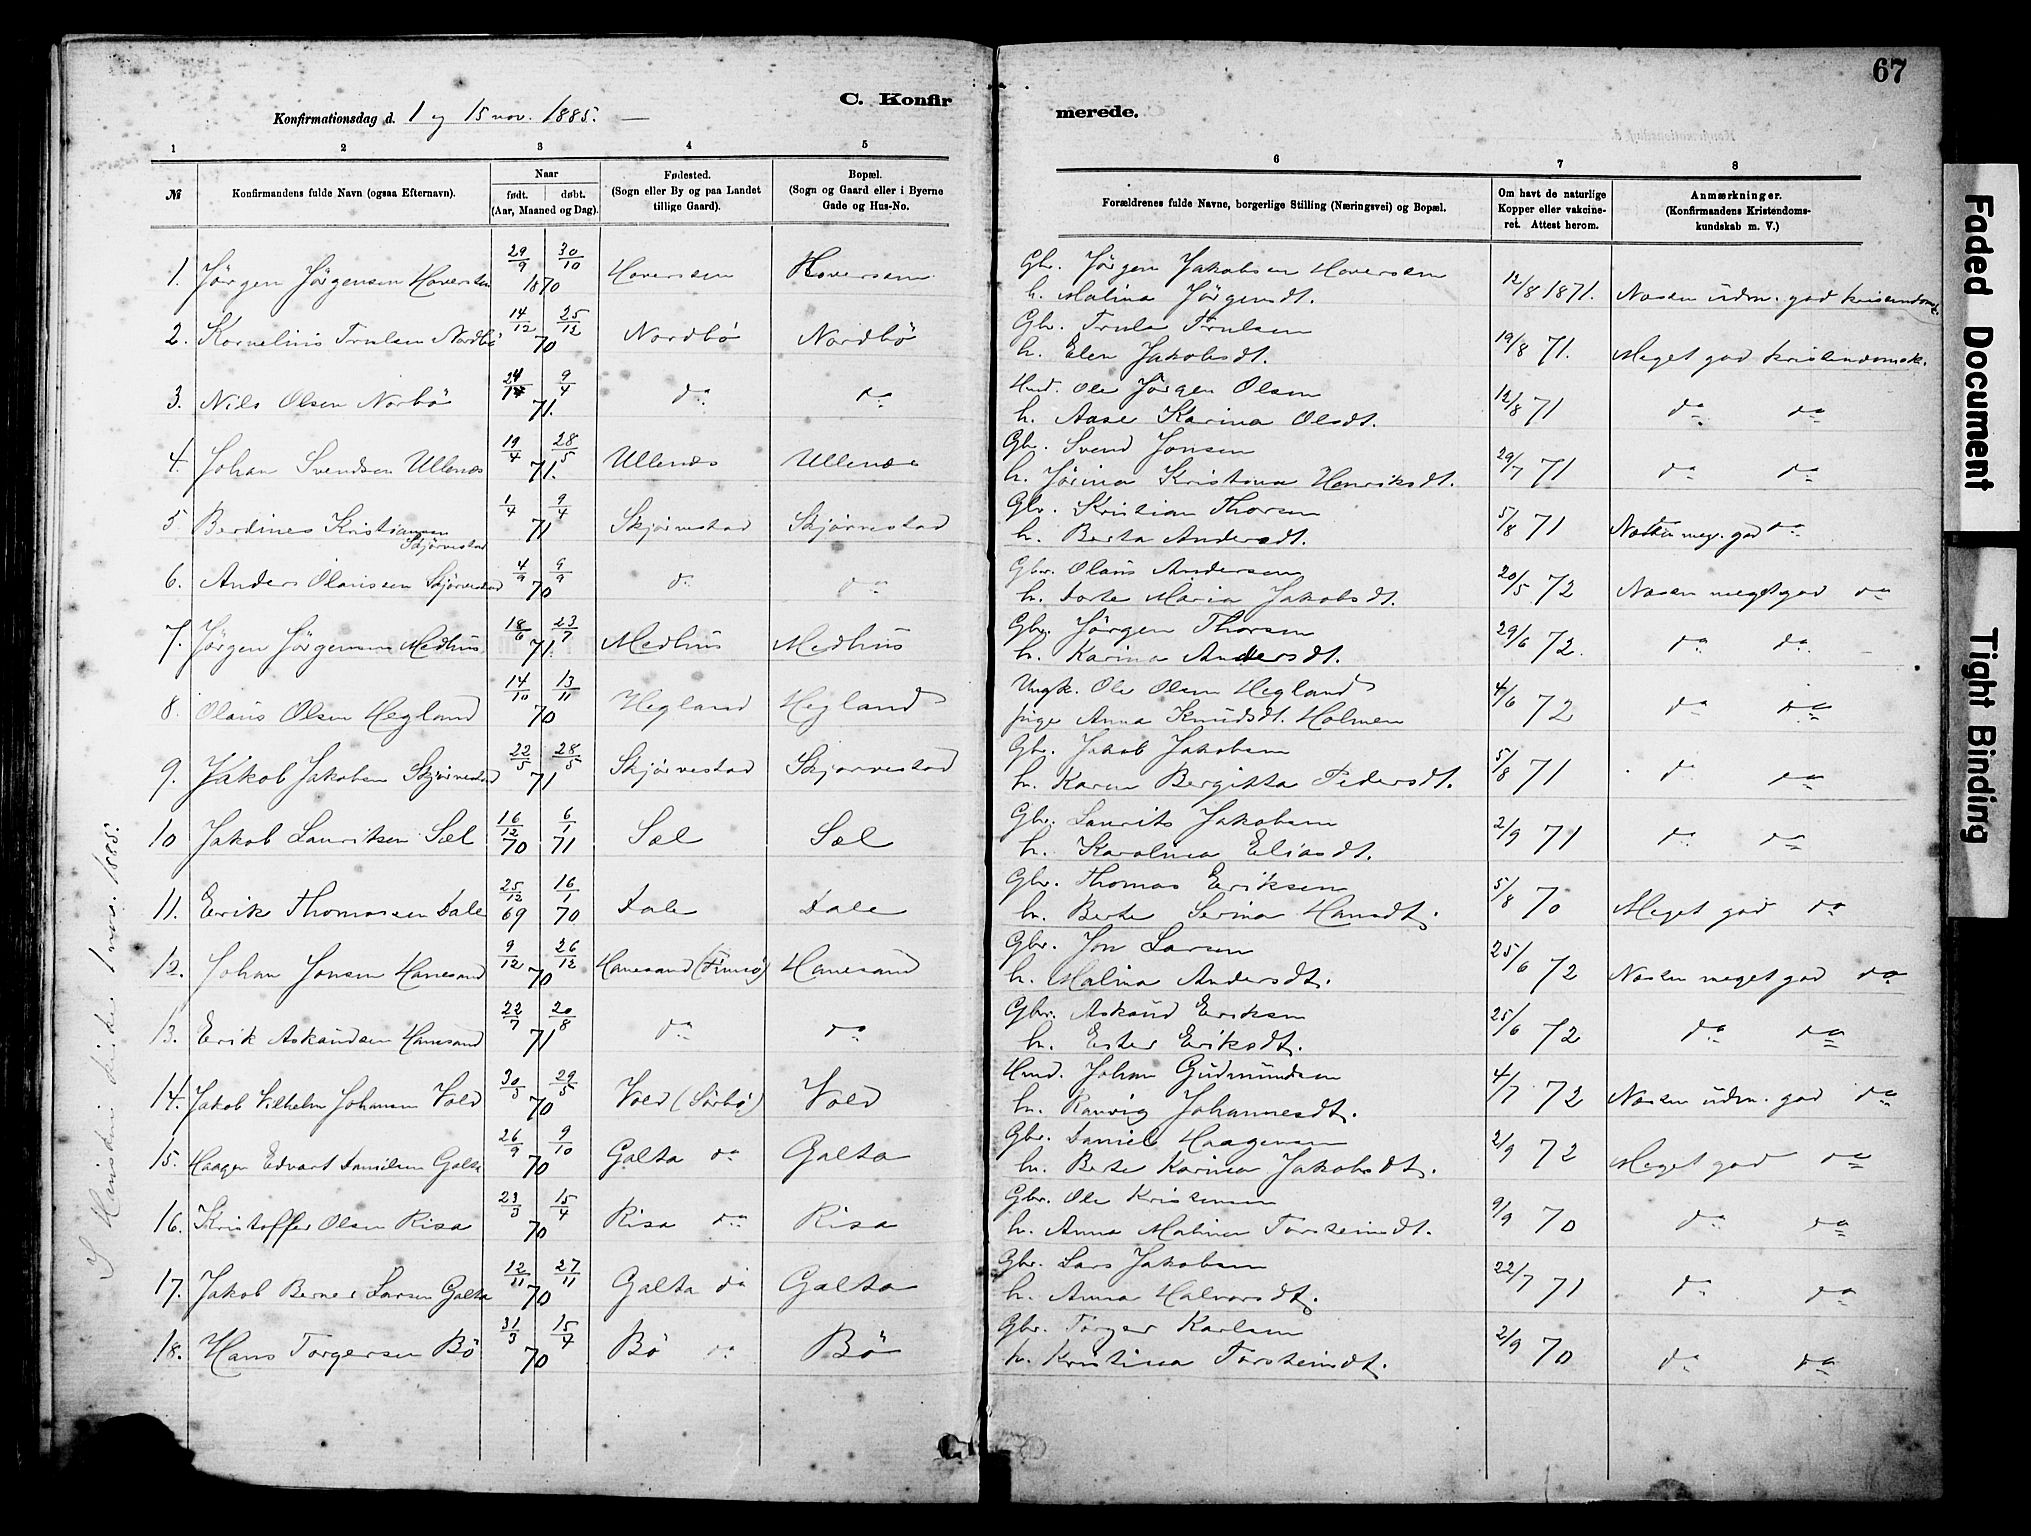 67
C. Konfirmerede.
Konfirmationsdag d. 1 og 15 nov. 1885.
1 2 3 4 5 6 7 8
№ Konfirmandens fulde Navn (ogsaa Efternavn).
Naar født. døbt. (Aar, Maaned og Dag).
Fødested. (Sogn eller By og paa Landet tillige Gaard).
Bopæl. (Sogn og Gaard eller i Byerne Gade og Hus-No.
Forældrenes fulde Navne, borgerlige Stilling (Næringsvei) og Bopæl.
Om havt de naturlige Kopper eller vakcineret. Attest herom.
Anmærkninger. (Konfirmandens Kristendomskundskab m. V.)
1. Jörgen Jörgensen Haversen 29/9 30/10 1870 Haversen Haversen Gbr. Jörgen Jakobsen Haversen h. Malina Jörgensdt. 12/8 1871. Næsten üdm. god kristendomsk.
2. Kornelius Trulsen Nordbö 14/12 25/12 70 Nordbö Nordbö Gbr. Truls Trulsen h. Elen Jakobsdt. 19/8 71. Meget god kristendomsk.
3. Nils Olsen Norbö 24/1 9/4 71. do do Hmd. Ole Jörgen Olsen h. Aase Karina Olsdt. 12/8 71 do do
4. Johan Svendsen Ullenæs 19/4 28/5 71. Ullenæs Ullenæs Gbr. Svend Jonsen h. Jörina Kristina Henriksdt. 29/7 71 do do
5 Berdines Kristiansen Skjörvestad 1/4 9/4 71 Skjörvestad Skjörvestad Gbr. Kristian Thorsen h. Berta Andersdt. 5/8 71 Næsten meg. god do
6. Anders Olaüssen Skjörvestad 4/9 9/9 70 do do Gbr. Olaüs Andersen h. Dorte Maria Jakobsdt. 20/5 72 Næsten meget god do
7. Jörgen Jörgensen Medhüs 18/6 23/7 71. Medhüs Medhüs Gbr. Jörgen Thorsen h. Karina Andersdt. 29/6 72. do do
8. Olaüs Olsen Hegland 14/10 13/11 70 Hegland Hegland Ungk. Ole Olsen Hegland Pige Anna Knudsdt. Holmen 4/6 72 do do
9. Jakob Jakobsen Skjörvestad 22/5 28/5 71 Skjörvestad Skjörvestad Gbr. Jakob Jakobsen h. Karen Bergitta Pedersdt. 5/8 71 do do
10 Jakob Lauritsen Sæl 16/12 70 6/1 71 Sæl Sæl Gbr. Laurits Jakobsen h. Karolina Eliasdt. 2/9 71 do do
11. Erik Thomassen Dale 25/12 69 16/1 70 Dale Dale Gbr. Thomas Eriksen h. Berte Serina Hansdt. 5/8 70 Meget god do
12. Johan Jonsen Hanesand 9/12 26/12 70 Hanesand (Finnö) Hanesand Gbr. Jon Larsen h. Malina Andersdt. 25/6 72 Næsten meget god do
13. Erik Askaüdsen Hanesand 22/7 20/8 71 do do Gbr. Askaüd Eriksen h. Ester Eriksdt. 25/6 72 do do
14. Jakob Vilhelm Johansen Vold 30/5 29/5 70 Vold (Sörbö) Vold Hmd. Johan Güdmündsen h. Ranvig Johannesdt. 4/7 72 Næsten üdm. god do
15. Haagen Edvart Danielsen Galta 26/9 9/10 70 Galta do Galta Gbr. Daniel Haagensen h. Berte Karina Jakobsdt. 2/9 72 Meget god do
16. Kristoffer Olsen Risa 23/3 15/4 70 Risa do Risa Gbr. Ole Kristensen h. Anna Malina Torsteinsdt. 9/9 70 do do
17. Jakob Berner Larsen Galta 12/11 27/11 70 Galta do Galta Gbr. Lars Jakobsen h. Anna Halvorsdt. 22/7 71 do do
18. Hans Torgersen Bö 31/3 15/4 70 Bö do Bö Gbr. Torger Karlsen h. Kristina Torsteinsdt. 2/9 70 do do
1 nov. 1885.
Faded Document
Tight Binding